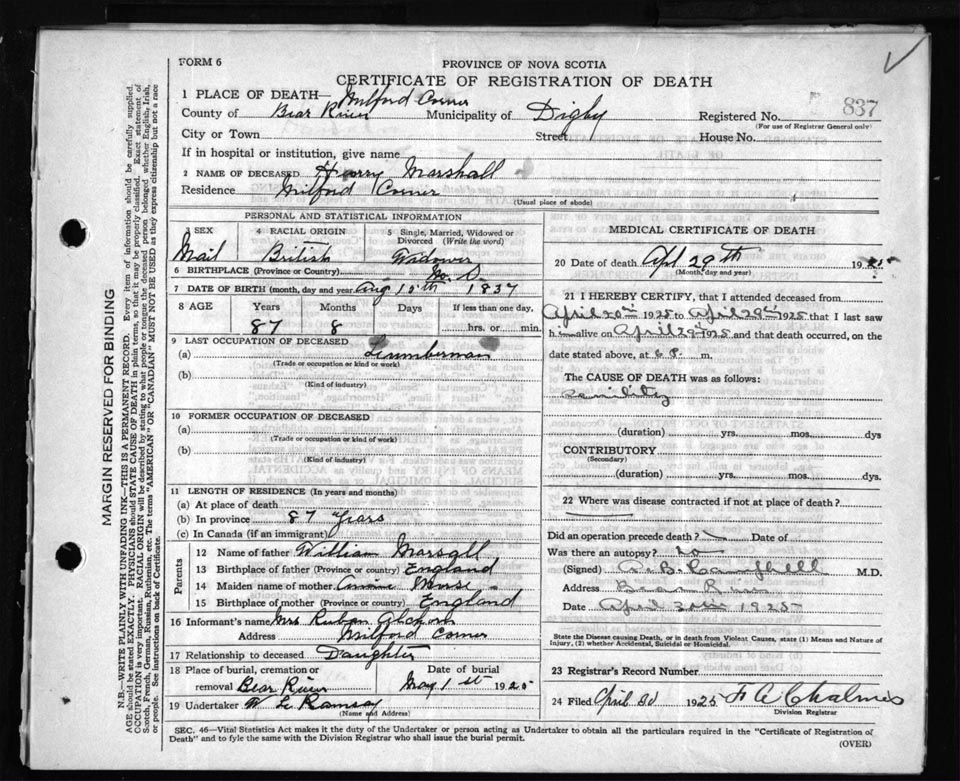 FORM 6
PROVINCE OF NOVA SCOTIA
CERTIFICATE OF REGISTRATION OF DEATH
837
1 PLACE OF DEATH— Milford Corner
County of Bear River Municipality of Digby Registered No.
(For use of Registrar General only)
City or Town Street House No.
If in hospital or institution, give name
2 NAME OF DECEASED Harry Marshall
Residence Milford Corner
(Usual place of abode)
PERSONAL AND STATISTICAL INFORMATION
3 SEX 4 RACIAL ORIGIN 5 Single, Married, Widowed or Divorced (Write the word)
Mail British Widower
6 BIRTHPLACE (Province or Country) N. S.
7 DATE OF BIRTH (month, day and year) Aug 15th 1837
8 AGE Years Months Days If less than one day,
87 8 hrs. or min.
9 LAST OCCUPATION OF DECEASED
(a) Lumberman
(Trade or occupation or kind or work)
(b)
(Kind of industry)
10 FORMER OCCUPATION OF DECEASED
(a)
(Trade or occupation or kind of work)
(b)
(Kind of industry)
11 LENGTH OF RESIDENCE (In years and months)
(a) At place of death
(b) In province 87 Years
(c) In Canada (if an immigrant)
Parents
12 Name of father William Marsall
13 Birthplace of father (Province or country) England
14 Maiden name of mother Morse
15 Birthplace of mother (Province or country) England
16 Informant's name Mrs Ruban
Address Milford Corner
17 Relationship to deceased Daughter
18 Place of burial, cremation or Date of burial
removal Bear River May 1st 1925
19 Undertaker W Le Ramsay
(Name and Address)
MEDICAL CERTIFICATE OF DEATH
20 Date of death Apl 29th 1925
(Month, day and year)
21 I HEREBY CERTIFY, that I attended deceased from
April 20th 1925 to April 29th 1925 that I last saw
him alive on April 29th 1925 and that death occurred, on the
date stated above, at 6 P. m.
The CAUSE OF DEATH was as follows:
Senility
(duration) yrs. mos. dys
CONTRIBUTORY
(Secondary)
(duration) yrs. mos. dys.
22 Where was disease contracted if not at place of death?
Did an operation precede death? Date of
Was there an autopsy? no
(Signed) Campbell M.D.
Address Bear River
Date April 30th 1925
State the Disease causing Death, or in death from Violent Causes, state (1) Means and Nature of
Injury, (2) whether Accidental, Suicidal or Homicidal.
23 Registrar's Record Number
24 Filed April 30 1925 F A Chalmers
Division Registrar
SEC. 46—Vital Statistics Act makes it the duty of the Undertaker or person acting as Undertaker to obtain all the particulars required in the "Certificate of Registration of
Death" and to fyle the same with the Division Registrar who shall issue the burial permit.
(OVER)
MARGIN RESERVED FOR BINDING
N.B.—WRITE PLAINLY WITH UNFADING INK—THIS IS A PERMANENT RECORD. Every item of information should be carefully supplied.
AGE should be stated EXACTLY. PHYSICIANS should STATE CAUSE OF DEATH in plain terms, so that it may be properly classified. Exact statement of
OCCUPATION is very important. RACIAL ORIGIN will be described by stating to what people or tongue the deceased person belonged whether English, Irish,
Scotch, French, German, Russian, Ruthenian, etc. The terms "AMERICAN" or "CANADIAN" MUST NOT BE USED as they express citizenship but not a race
or people. See instructions on back of Certificate.